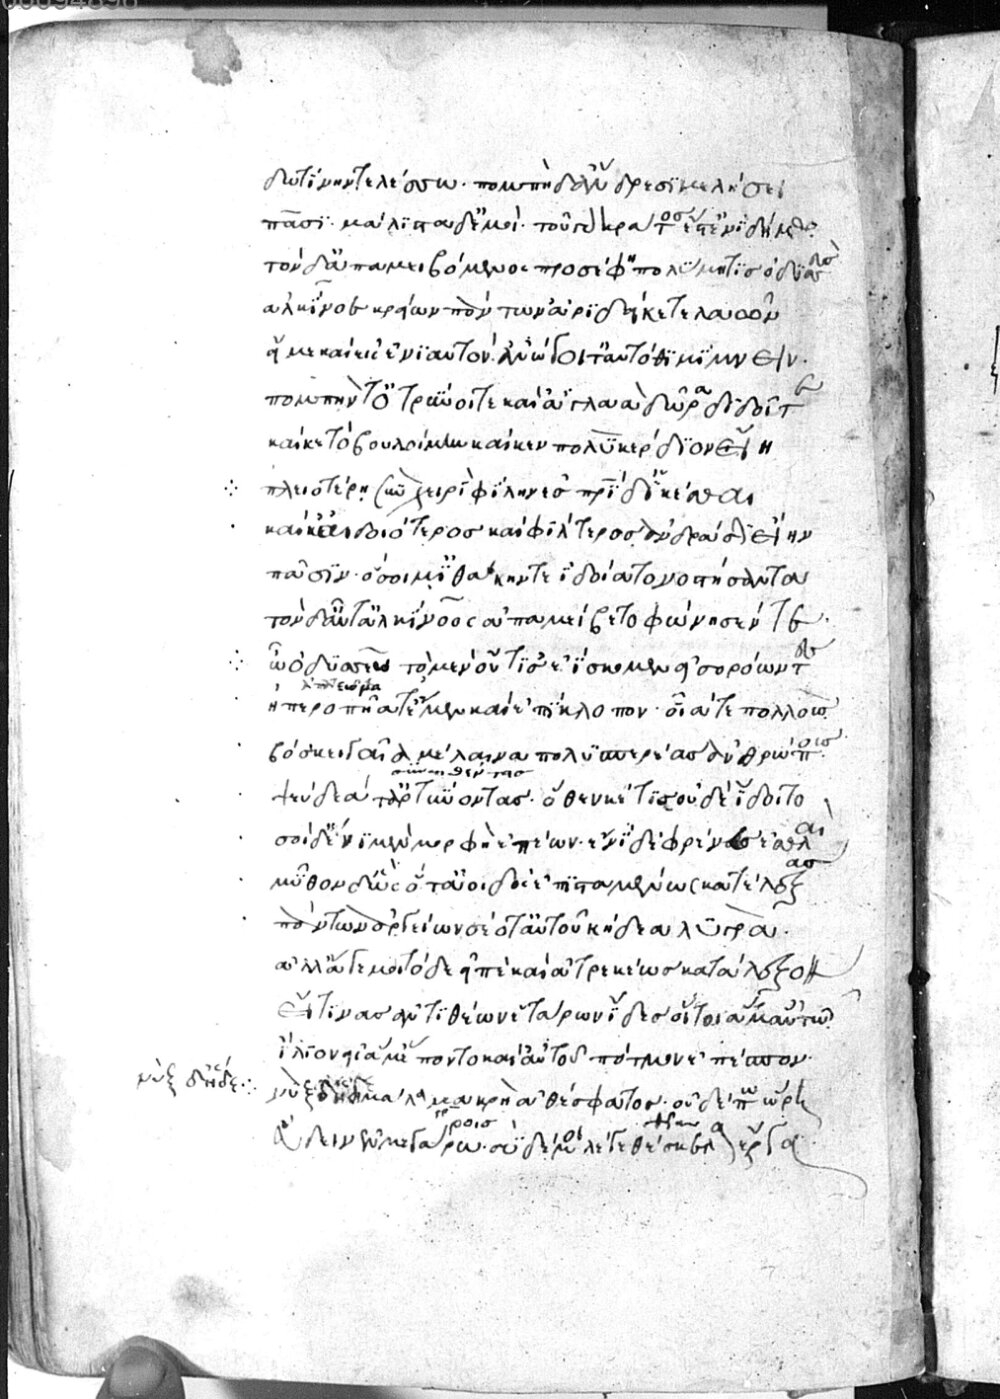 00094898
δωτίνην τελέσσω· πομπὴ δ' ἄνδρεσι μελήσει
πᾶσι· μάλιστα δ' ἐμοί· τοῦ γὰρ κράτος ἔστ' ἐνὶ δήμω
τὸν δ' ἀπαμειβόμενος προσέφη πολύμητις ὀδυσσεὺς
ἀλκίνοε κρεῖον πάντων ἀριδείκετε λαῶν
εἴ με καὶ εἰς ἐνιαυτὸν ἀνώγοιτ' αὐτόθι μίμνειν·
πομπὴν τ' ὀτρύνοιτε καὶ ἀγλαὰ δῶρα διδοῖτε
καί κε τὸ βουλοίμην καί κεν πολὺ κέρδιον εἴη
πλειοτέρη σὺν χειρὶ φίλην ἐς πατρίδ' ἱκέσθαι
καί κ' αἰδοιότερος καὶ φίλτερος ἀνδράσιν εἴην
πᾶσιν· ὅσοι μ' ἰθάκηνδε ἰδοίατο νοστήσαντα
τὸν δ' αὖτ' ἀλκίνοος ἀπαμείβετο φώνησέν τε·
ὦ ὀδυσεῦ τὸ μὲν οὔτι σ' ἐΐσκομεν εἰσορόωντες
ἠπεροπῆα τ' ἔμεν καὶ ἐπίκλοπον· οἷά τε πολλοὺς
βόσκει γαῖα μέλαινα πολυσπερέας ἀνθρώπους
ψεύδεά τ' ἀρτύνοντας· ὅθεν κέ τις οὐδὲ ἴδοιτο
σοὶ δ' ἔνι μὲν μορφὴ ἐπέων· ἔνι δὲ φρένες ἐσθλαὶ
μῦθον δ' ὡς ὅτ' ἀοιδὸς ἐπισταμένως κατέλεξας
πάντων ἀργείων σέο τ' αὐτοῦ κήδεα λυγρά·
ἀλλ' ἄγε μοι τόδε εἰπὲ καὶ ἀτρεκέως κατάλεξον
εἴ τινας ἀντιθέων ἑτάρων ἴδες οἵ τοι ἅμ' αὐτῶ
ἴλιον εἰς ἅμ' ἕποντο καὶ αὐτοῦ πότμον ἐπέσπον·
νὺξ δ' ἥδε
νὺξ δ' ἥδε μάλα μακρὴ ἀθέσφατος· οὐδέ πω ὥρη
εὕδειν ἐν μεγάρω· σὺ δέ μοι λέγε θέσκελα ἔργα